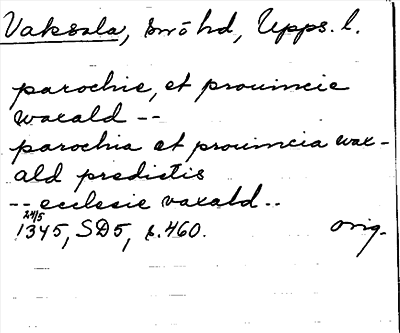 Vaksala, smōhd, Upps. l.
parochie, et prouincie
waxald --
parochia et prouincia wax-
ald predictis
-- ecclesie vaxald..
24/5
1345, SD5, s. 460. orig.